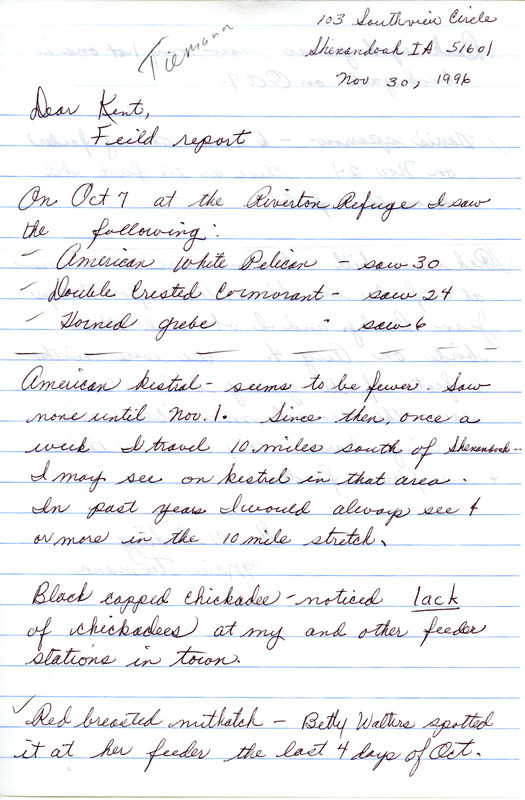 103 Southview Circle
Tiemann
Shenandoah IA 51601
Nov 30, 1996
Dear Kent,
Feild report
On Oct 7 at the Riverton Refuge I saw
the following:
- American White Pelican - saw 30
- Double Crested Cormorant - saw 24
- Horned grebe " saw 6
American kestral - seems to be fewer. Saw
none until Nov. 1. Since then, once a
week I travel 10 miles south of Shenandoah -
I may see on kestrel in that area.
In past years I would always see 4
or more in the 10 mile stretch.
Black capped chickadee - noticed lack
of chickadees at my and other feeder
stations in town.
✓ Red breasted nuthatch - Betty Walters spotted
it at her feeder the last 4 days of Oct.